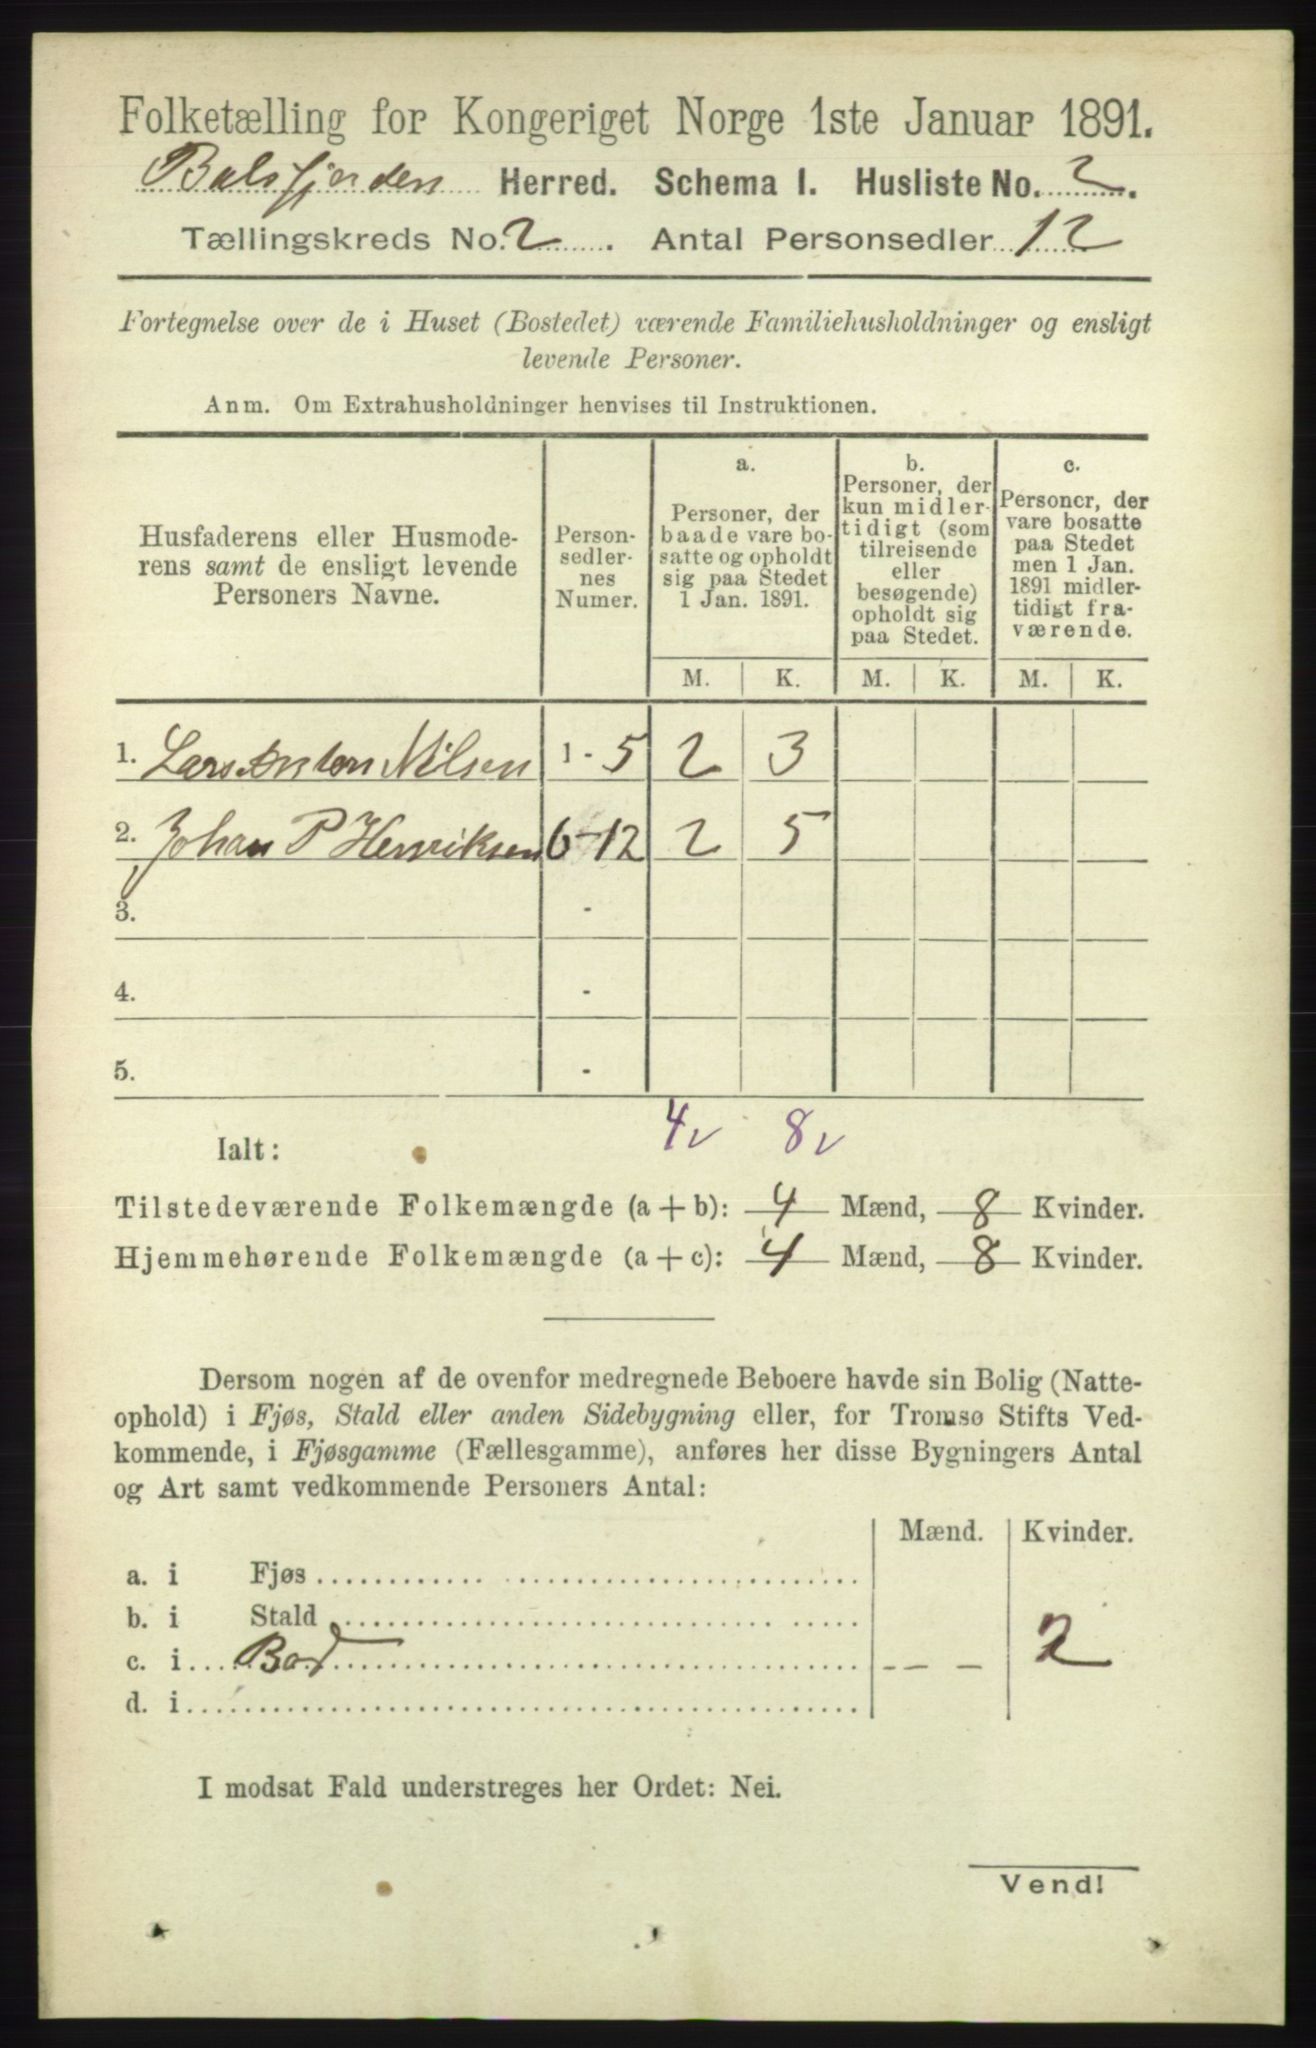 Folketælling for Kongeriget Norge 1ste Januar 1891.
Balsfjorden Herred. Schema I. Husliste No. 2.
Tællingskreds No. 2. Antal Personsedler 12
Fortegnelse over de i Huset (Bostedet) værende Familiehusholdninger og ensligt
levende Personer.
Anm. Om Extrahusholdninger henvises til Instruktionen.
Husfaderens eller Husmode-
rens samt de ensligt levende
Personers Navne.
Person-
sedler-
nes
Numer.
a.
Personer, der
baade vare bo-
satte og opholdt
sig paa Stedet
1 Jan. 1891.
b.
Personer, der
kun midler-
tidigt (som
tilreisende
eller
besøgende)
opholdt sig
paa Stedet.
c.
Personer, der
vare bosatte
paa Stedet
men 1 Jan.
1891 midler-
tidigt fra-
værende.
M. K. M. K. M. K.
1. Lars Anton Nilsen 1 - 5 2 3
2. Johan P Henriksen 6-12 2 5
3. -
4. -
5. -
4 v 8 v
Ialt:
Tilstedeværende Folkemængde (a + b): 4 Mænd, 8 Kvinder.
Hjemmehørende Folkemængde (a + c): 4 Mænd, 8 Kvinder.
Dersom nogen af de ovenfor medregnede Beboere havde sin Bolig (Natte-
ophold) i Fjøs, Stald eller anden Sidebygning eller, for Tromsø Stifts Ved-
kommende, i Fjøsgamme (Fællesgamme), anføres her disse Bygningers Antal
og Art samt vedkommende Personers Antal:
Mænd. Kvinder.
a. i Fjøs
b. i Stald
c. i Bod - - - 2
d. i
I modsat Fald understreges her Ordet: Nei.
Vend!